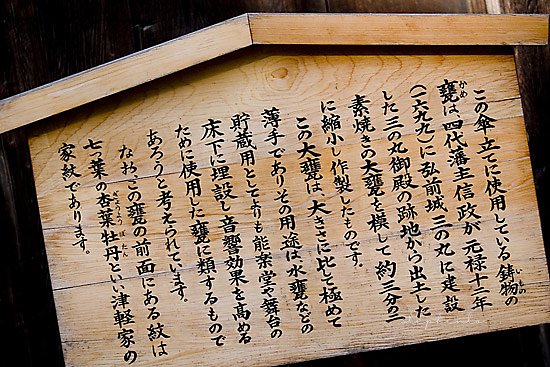 この傘立てに使用している鋳物の
甕は四代藩主信政が元禄十二年
(一六九九)に弘前城三の丸に建設
した三の丸御殿の跡地から出土した
素焼きの大甕を模して約三分の二
に縮小し作製したものです。
この大甕は、大きさに比して極めて
薄手でありその用途は水甕などの
貯蔵用としてよりも能楽堂や舞台の
床下に埋設し音響効果を高める
ために使用した甕に類するもので
あろうと考えられています。
なおこの甕の前面にある紋は
七つ葉の杏葉牡丹といい津軽家の
家紋であります。
いもの
かめ
ぎょうようぼたん